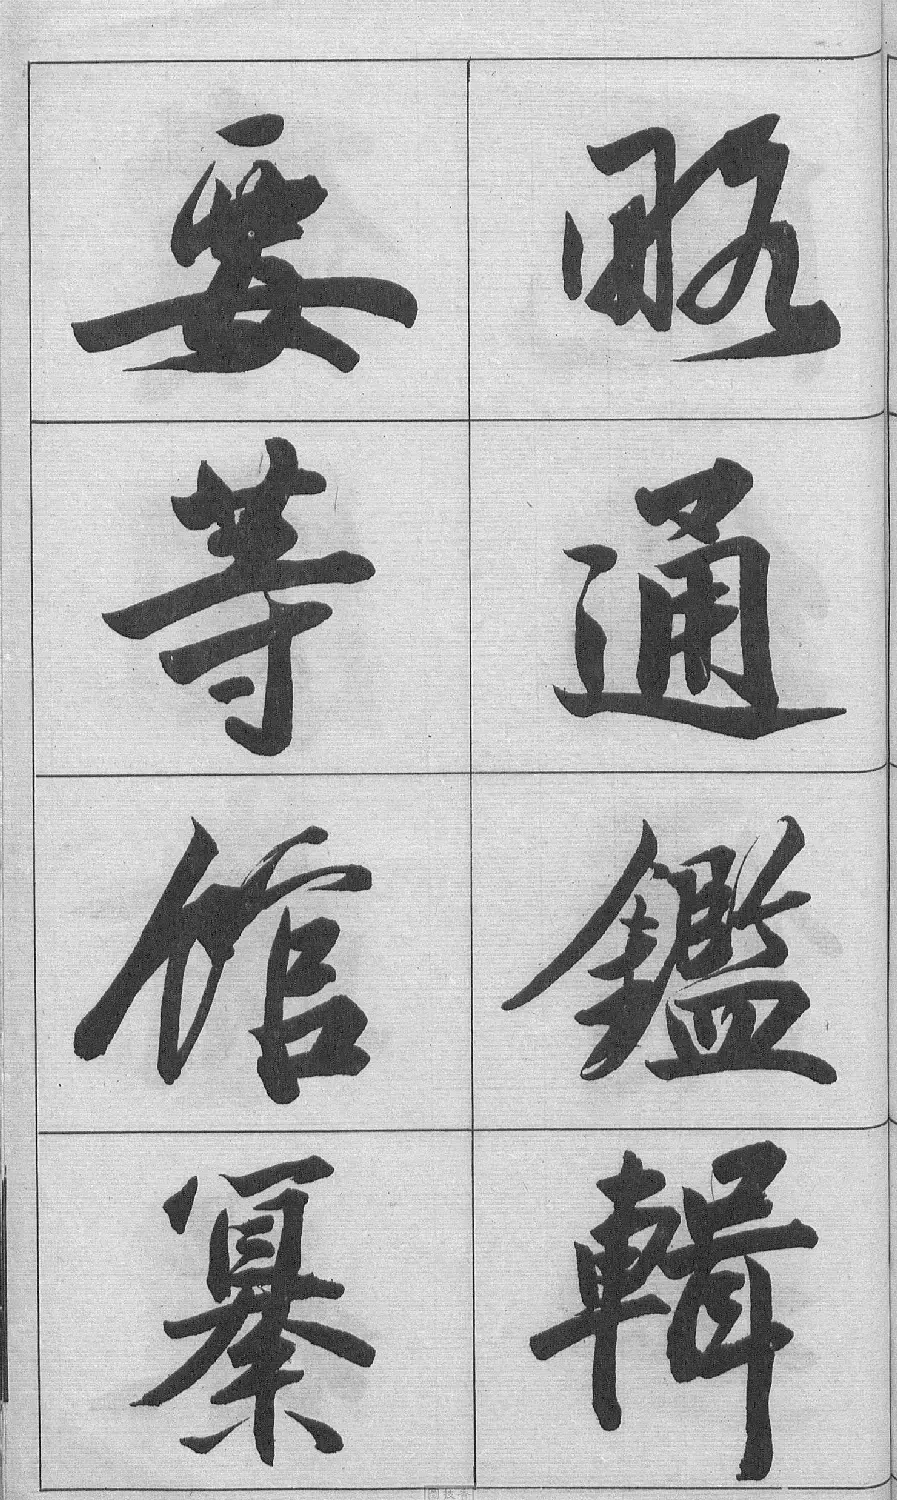 略通鑑輯
要等館纂